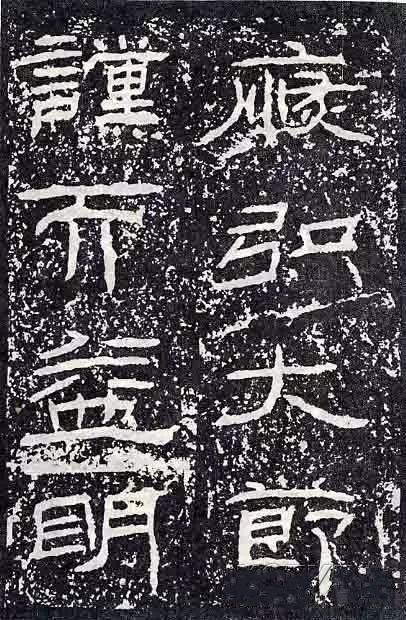 弘大節
讜而益明